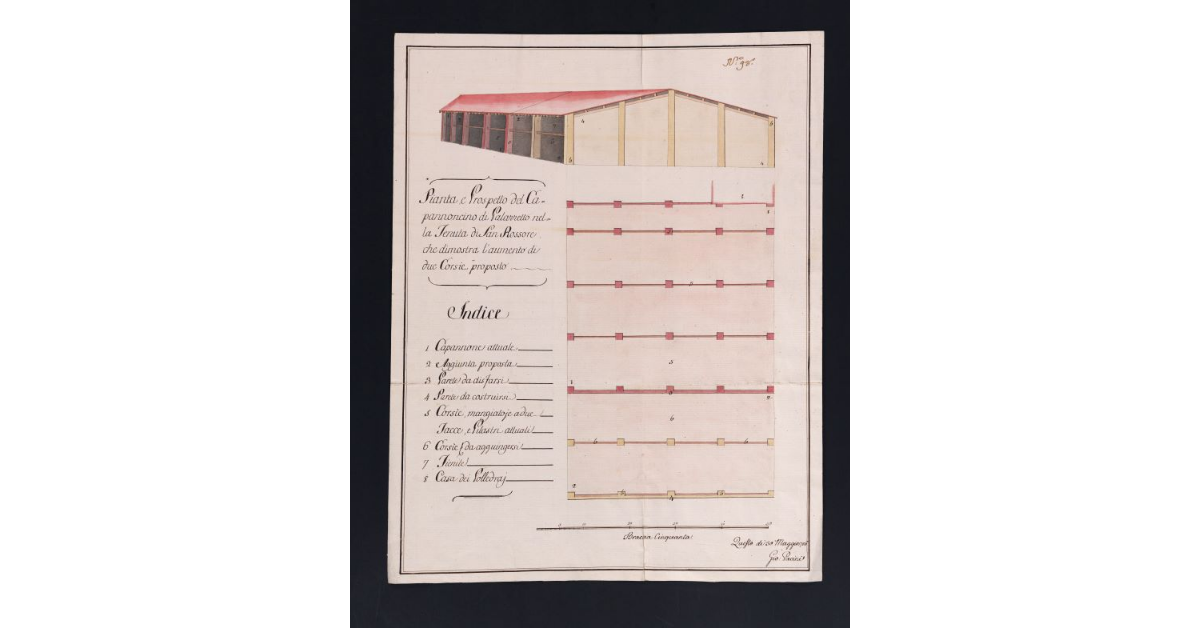 N.ro 98.
Pianta e Prospetto del Ca-
pannoncino di Palazzetto nel-
la Tenuta di San Rossore
che dimostra l'aumento di
due Corsie proposto
Indice
1 Capannone attuale
2 Aggiunta proposta
3 Parete da disfarsi
4 Parete da costruirsi
5 Corsie, mangiatoje a due
Facce, e Pilastri attuali
6 Corsie da aggiungersi
7 Fienile
8 Casa dei Polledraj
Braccia Cinquanta
Questo dì 30 Maggio
Gio. Pacini